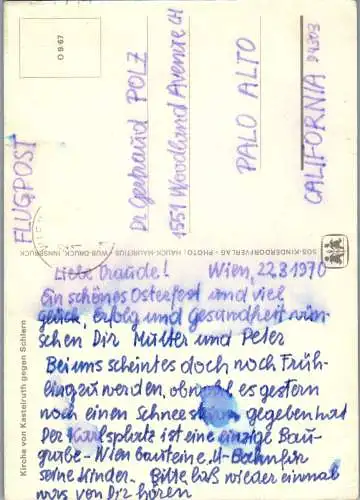 O 9.67
FLUGPOST
Dr Gertraud POLZ
1551 Woodland Avenue
PALO ALTO
CALIFORNIA 94303
SOS-KINDERDORFVERLAG · PHOTO: HAUCK-MAURITIUS / WUB-DRUCK, INNSBRUCK
Kirche von Kastelruth gegen Schlern
Liebe Traude! Wien, 22.3.1970
Ein schönes Osterfest und viel
Glück, Erfolg und Gesundheit wün-
schen Dir Mutter und Peter
Bei uns scheint es doch noch Früh-
ling zu werden, obwohl es gestern
noch einen Schneesturm gegeben hat
Der Karlsplatz ist eine einzige Bau-
grube - Wien baut seine U-Bahn für
seine Kinder. Bitte laß wieder einmal
was von Dir hören